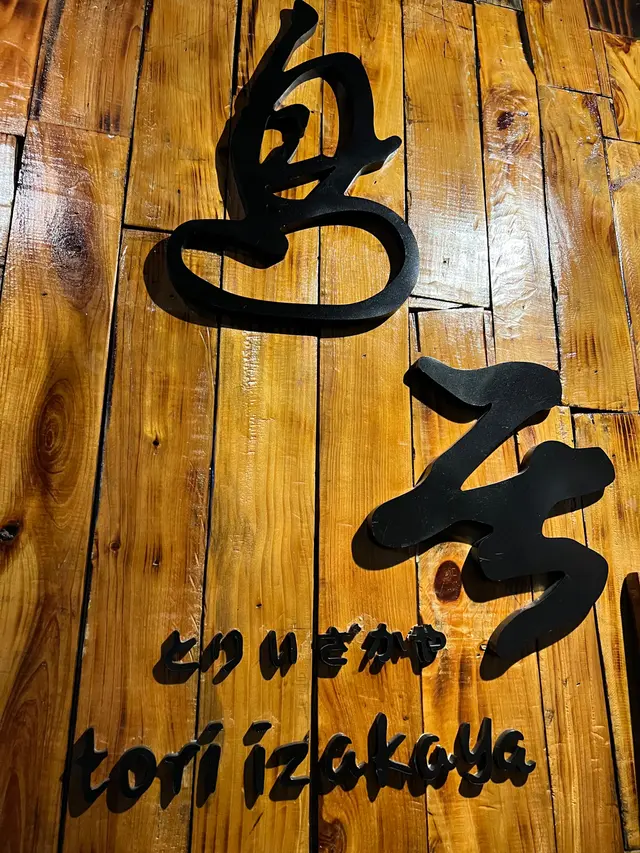 鳥
とり いざかや
tori izakaya